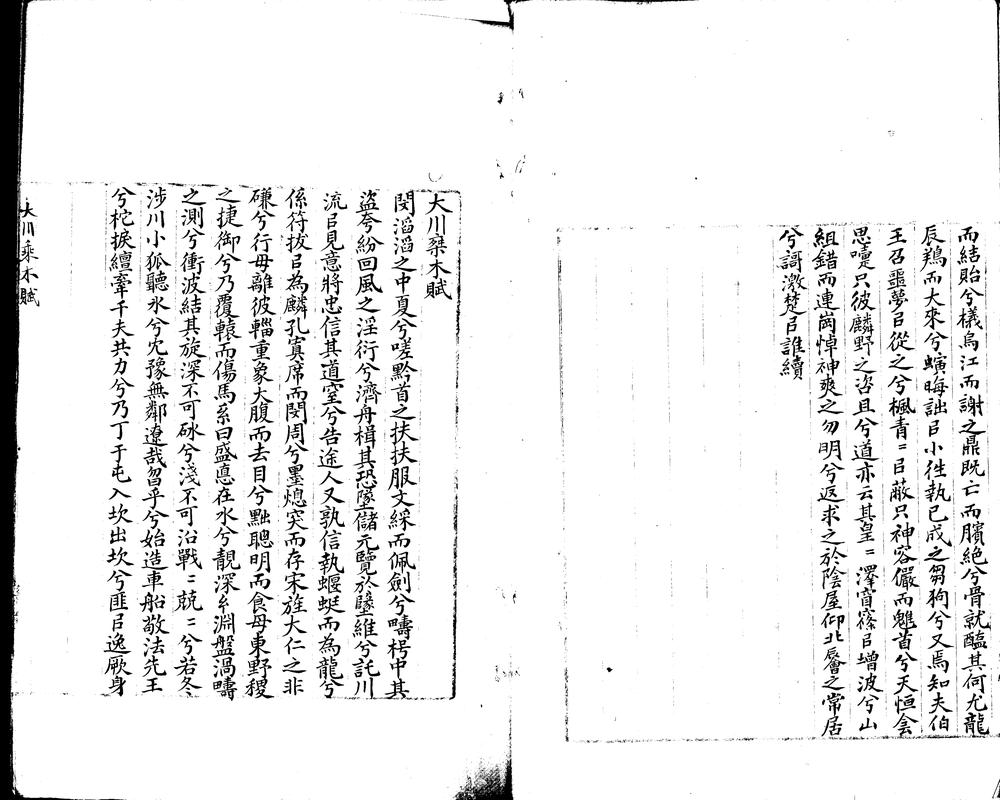 而結貽兮檥烏江而謝之鼎既亡而臏絕兮骨就醢其何尤龍
辰鶉而大來兮蠙晦詘㠯小徃執已成之芻狗兮又焉知夫伯
王召噩夢㠯從之兮楓青=㠯蔽只神容儼而雝首兮天恒侌
思嚏只彼麟野之咨且兮道亦云其皇=澤窅篠㠯增波兮山
組錯而連崗悼神爽之勿明兮返求之於陰屋仰北之常居
兮謌激楚㠯誰續
大川椉木賦
閔滔滔之中夏兮嗟黔首之扶扶服文綵而佩劍兮疇枵中其
盜夸紛回風之淫衍兮濟舟楫其恐墜儲元覽於墬維兮託川
流㠯見意將忠信其道窒兮告途人又孰信執蝘蜓而為龍兮
係符拔㠯為麟孔寞席而閔周兮墨熄突而存宋旌大仁之非
磏兮行毋離彼輜重象大腹而去目兮黜聰明而食母東野稷
之捷御兮乃覆轅而傷馬系曰盛悳在水兮靚深幺淵盤渦疇
之測兮衝波結其旋深不可砅兮淺不可沿戰=兢=兮若冬
涉川小狐聽氷兮宂豫無鄰遼哉曶乎兮始造車船敬法先王
兮柁捩繵牽千夫共力兮乃丁于屯入坎出坎兮匪㠯逸厥身
大川乘木賦